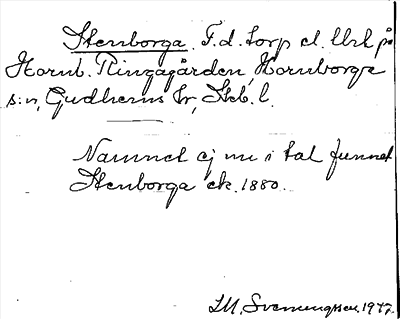 Stenborga. F.d. torp el. lht på
Hornb. Ringagården, Hornborga
s:n, Gudhems hr, Skb. l.
Namnet ej nu i tal funnet
Stenborga ek. 1880.
I.M. Svenningsson. 1947.